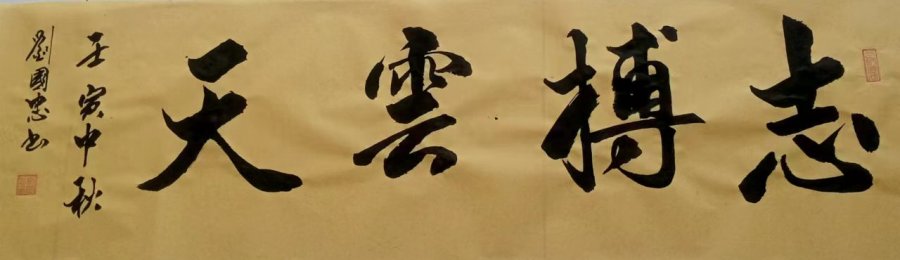 志搏雲天
壬寅中秋
劉國忠书